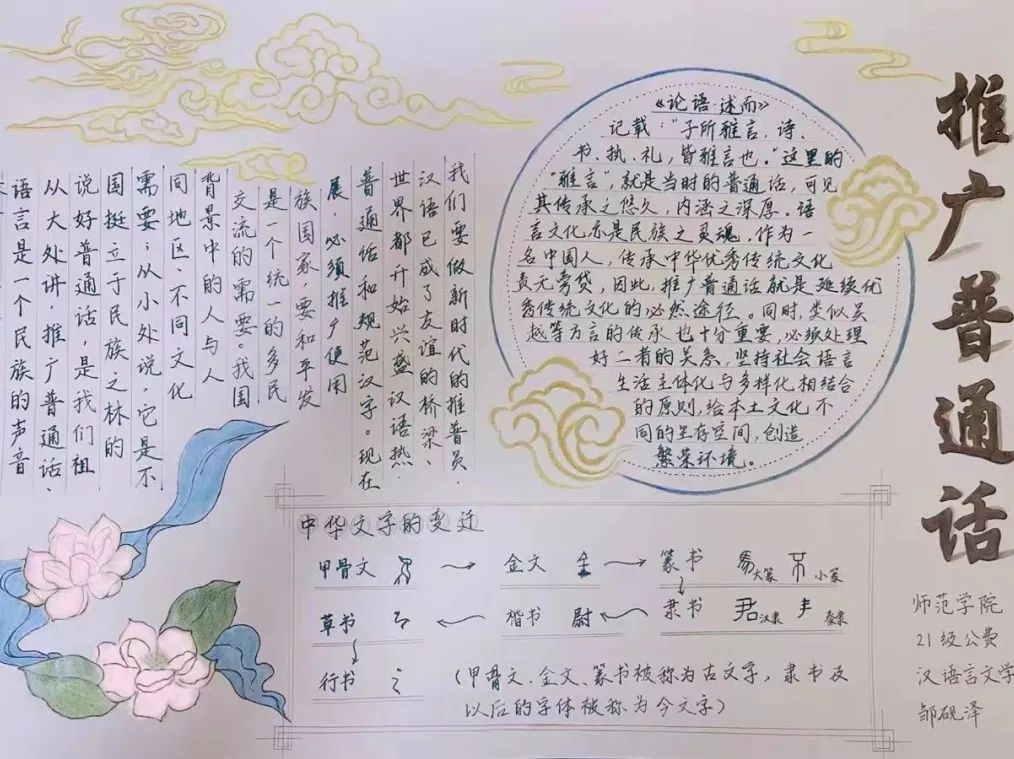 推广普通话
《论语·述而》
记载：“子所雅言，诗、
书、执、礼，皆雅言也。”这里的
“雅言”，就是当时的普通话，可见
其传承之悠久，内涵之深厚。语
言文化亦是民族之灵魂，作为一
名中国人，传承中华优秀传统文化
责无旁贷，因此，推广普通话就是延续优
秀传统文化的必然途径。同时，类似吴
越等方言的传承也十分重要，必须处理
好二者的关系，坚持社会语言
生活主体化与多样化相结合
的原则，给本土文化不
同的生存空间，创造
繁荣环境。
语言是一个民族的声音
从大处讲，推广普通话、
说好普通话，是我们祖
国挺立于民族之林的
需要；从小处说，它是不
同地区、不同文化
背景中的人与人
交流的需要。我国
是一个统一的多民
族国家，要和平发
展，必须推广使用
普通话和规范汉字。现在
世界都开始兴盛汉语热
汉语已成了友谊的桥梁、
我们要做新时代的推普员.
中华文字的变迁
甲骨文 → 金文 → 篆书 大篆 小篆
草书 ← 楷书 尉 ← 隶书 君汉隶 秦隶
行书
（甲骨文、金文、篆书被称为古文字，隶书及
以后的字体被称为今文字）
师范学院
21级公费
汉语言文学
邹砚泽